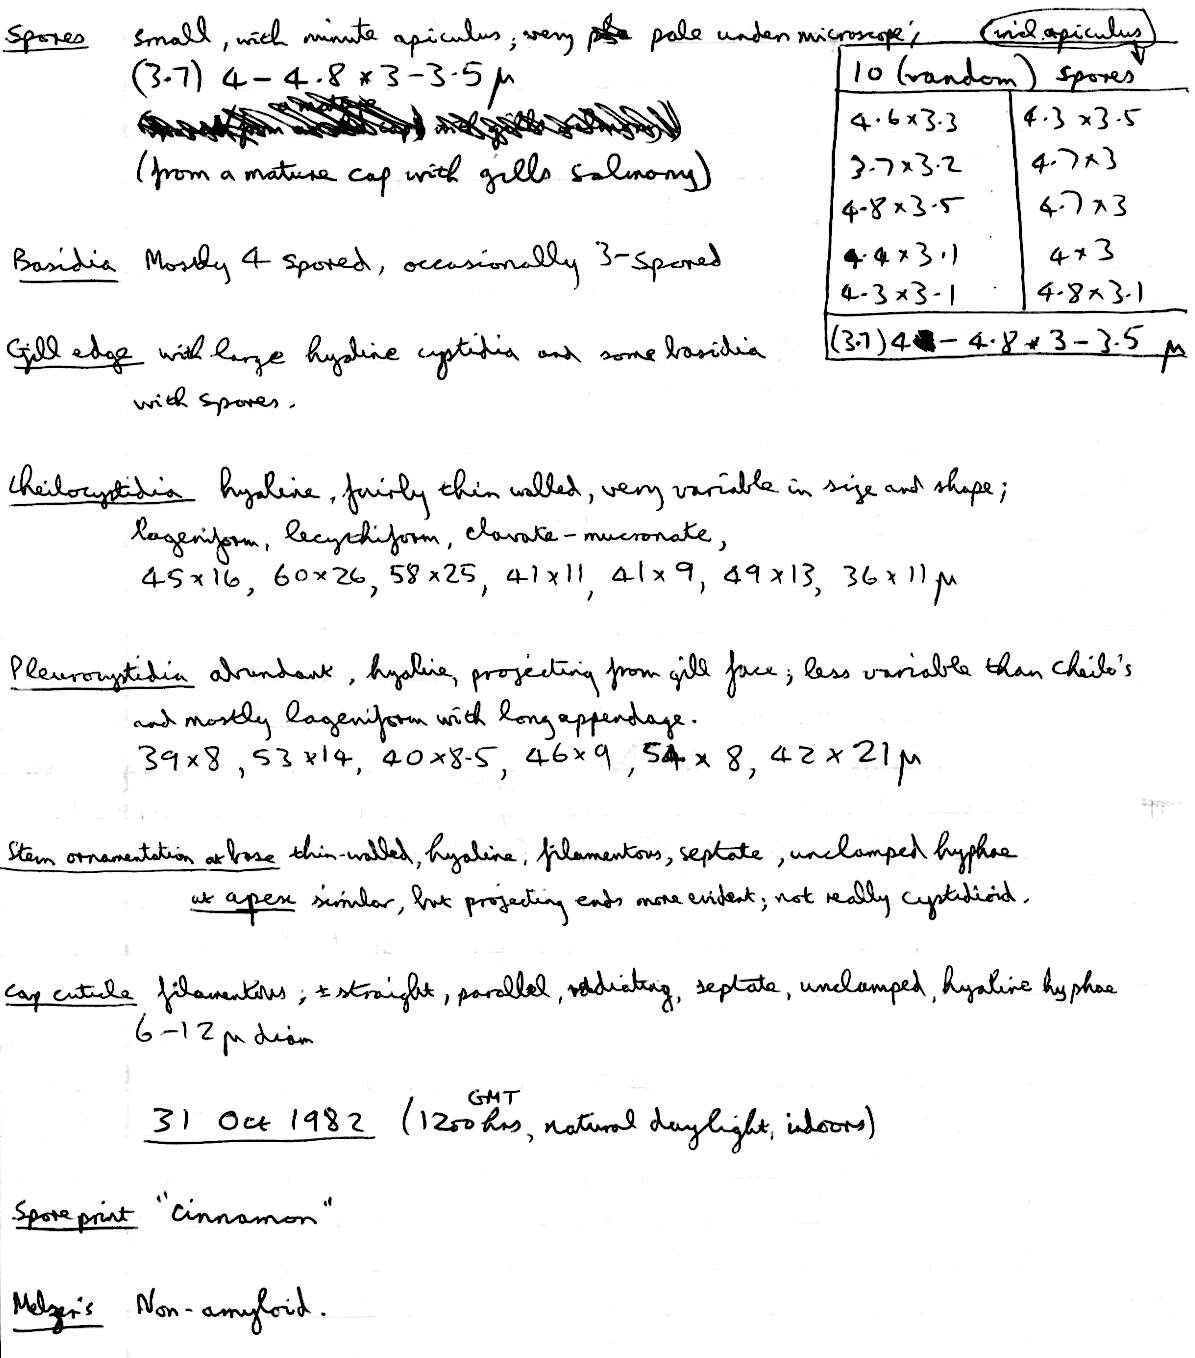 Spores small, with minute apiculus; very pale under microscope;
(3.7) 4 – 4.8 × 3 – 3.5 µ
(from a mature cap with gills salmony)
incl. apiculus
10 (random) spores
4.6 × 3.3 4.3 × 3.5
3.7 × 3.2 4.7 × 3
4.8 × 3.5 4.7 × 3
4.4 × 3.1 4 × 3
4.3 × 3.1 4.8 × 3.1
(3.7) 4 – 4.8 × 3 – 3.5 µ
Basidia Mostly 4 spored, occasionally 3-spored
Gill edge with large hyaline cystidia and some basidia
with spores.
Cheilocystidia hyaline, fairly thin walled, very variable in size and shape;
lageniform, lecythiform, clavate-mucronate,
45 × 16, 60 × 26, 58 × 25, 41 × 11, 41 × 9, 49 × 13, 36 × 11 µ
Pleurocystidia abundant, hyaline, projecting from gill face; less variable than cheilo's
and mostly lageniform with long appendage.
39 × 8, 53 × 14, 40 × 8.5, 46 × 9, 54 × 8, 42 × 21 µ
Stem ornamentation at base thin-walled, hyaline, filamentous, septate, unclamped hyphae
at apex similar, but projecting ends more evident; not really cystidioid.
Cap cuticle filamentous; ± straight, parallel, radiating, septate, unclamped, hyaline hyphae
6 – 12 µ diam
31 Oct 1982 (1200 hrs GMT, natural daylight, indoors)
Spore print "cinnamon"
Melzer's Non-amyloid.